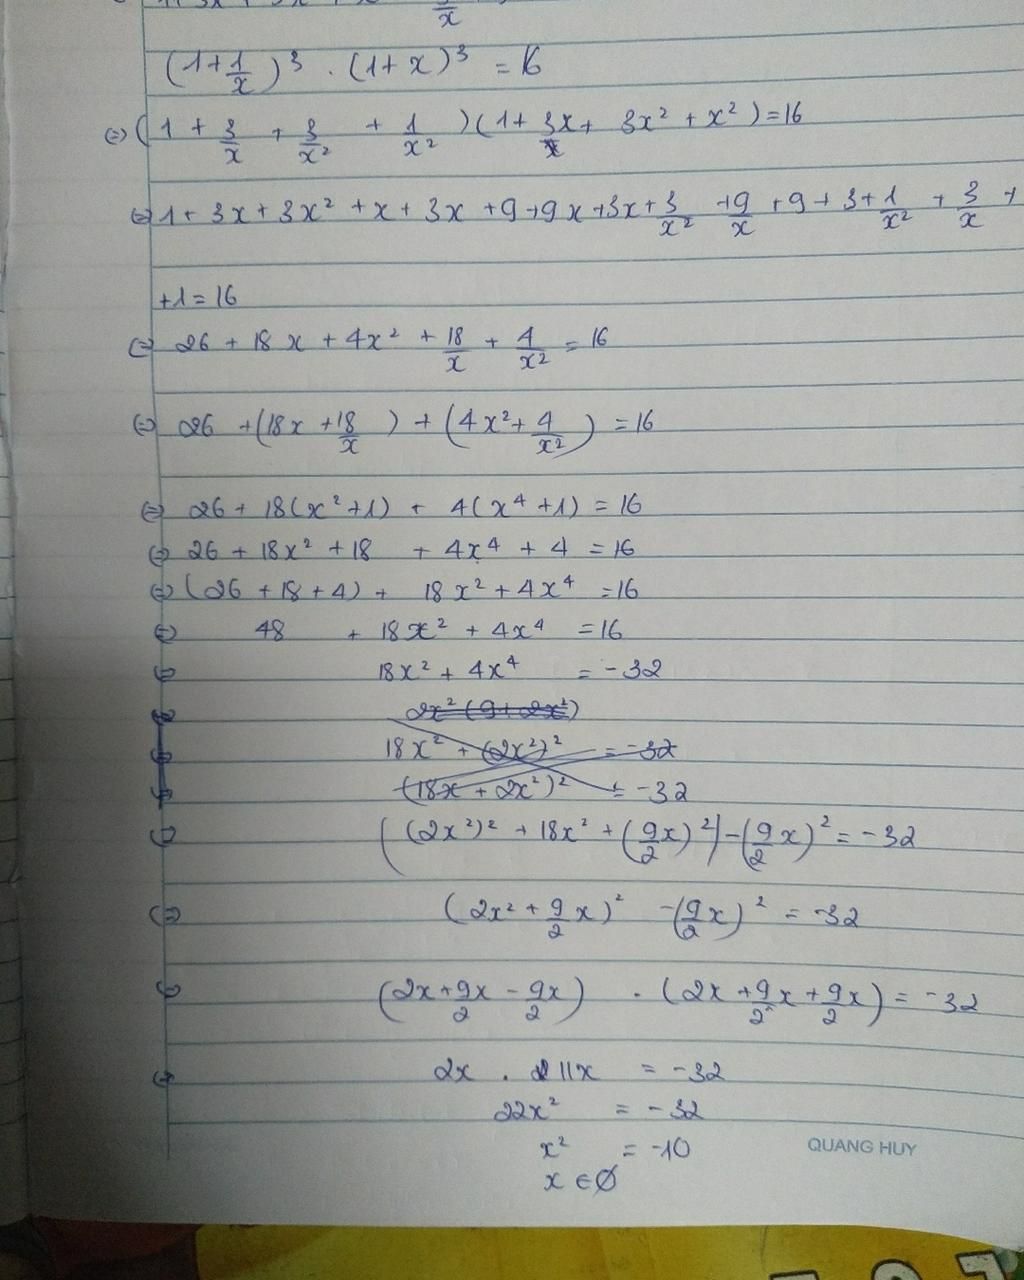 (1+1/x)³ . (1+x)³ = 16
⇔ (1 + 3/x + 3/x² + 1/x²)(1 + 3x + 3x² + x²) = 16
⇔ 1 + 3x + 3x² + x + 3x + 9 + 9x + 3x + 3/x² + 9/x + 9 + 3 + 1/x² + 3/x +
+1 = 16
⇔ 26 + 18x + 4x² + 18/x + 4/x² = 16
⇔ 26 + (18x + 18/x) + (4x² + 4/x²) = 16
⇔ 26 + 18(x²+1) + 4(x⁴+1) = 16
⇔ 26 + 18x² + 18 + 4x⁴ + 4 = 16
⇔ (26 + 18 + 4) + 18x² + 4x⁴ = 16
⇔ 48 + 18x² + 4x⁴ = 16
⇔ 18x² + 4x⁴ = -32
⇔ 2x²(9 + 2x²)
⇔ 18x² + (2x²)² = -32
⇔ (18x + 2x²)² = -32
⇔ ((2x²)² + 18x² + (9/2 x)²) - (9/2 x)² = -32
⇔ (2x² + 9/2 x)² - (9/2 x)² = -32
⇔ (2x + 9x/2 - 9x/2) . (2x + 9/2 x + 9/2 x) = -32
⇔ 2x . 11x = -32
22x² = -32
x² = -10
x ∈ Ø
QUANG HUY